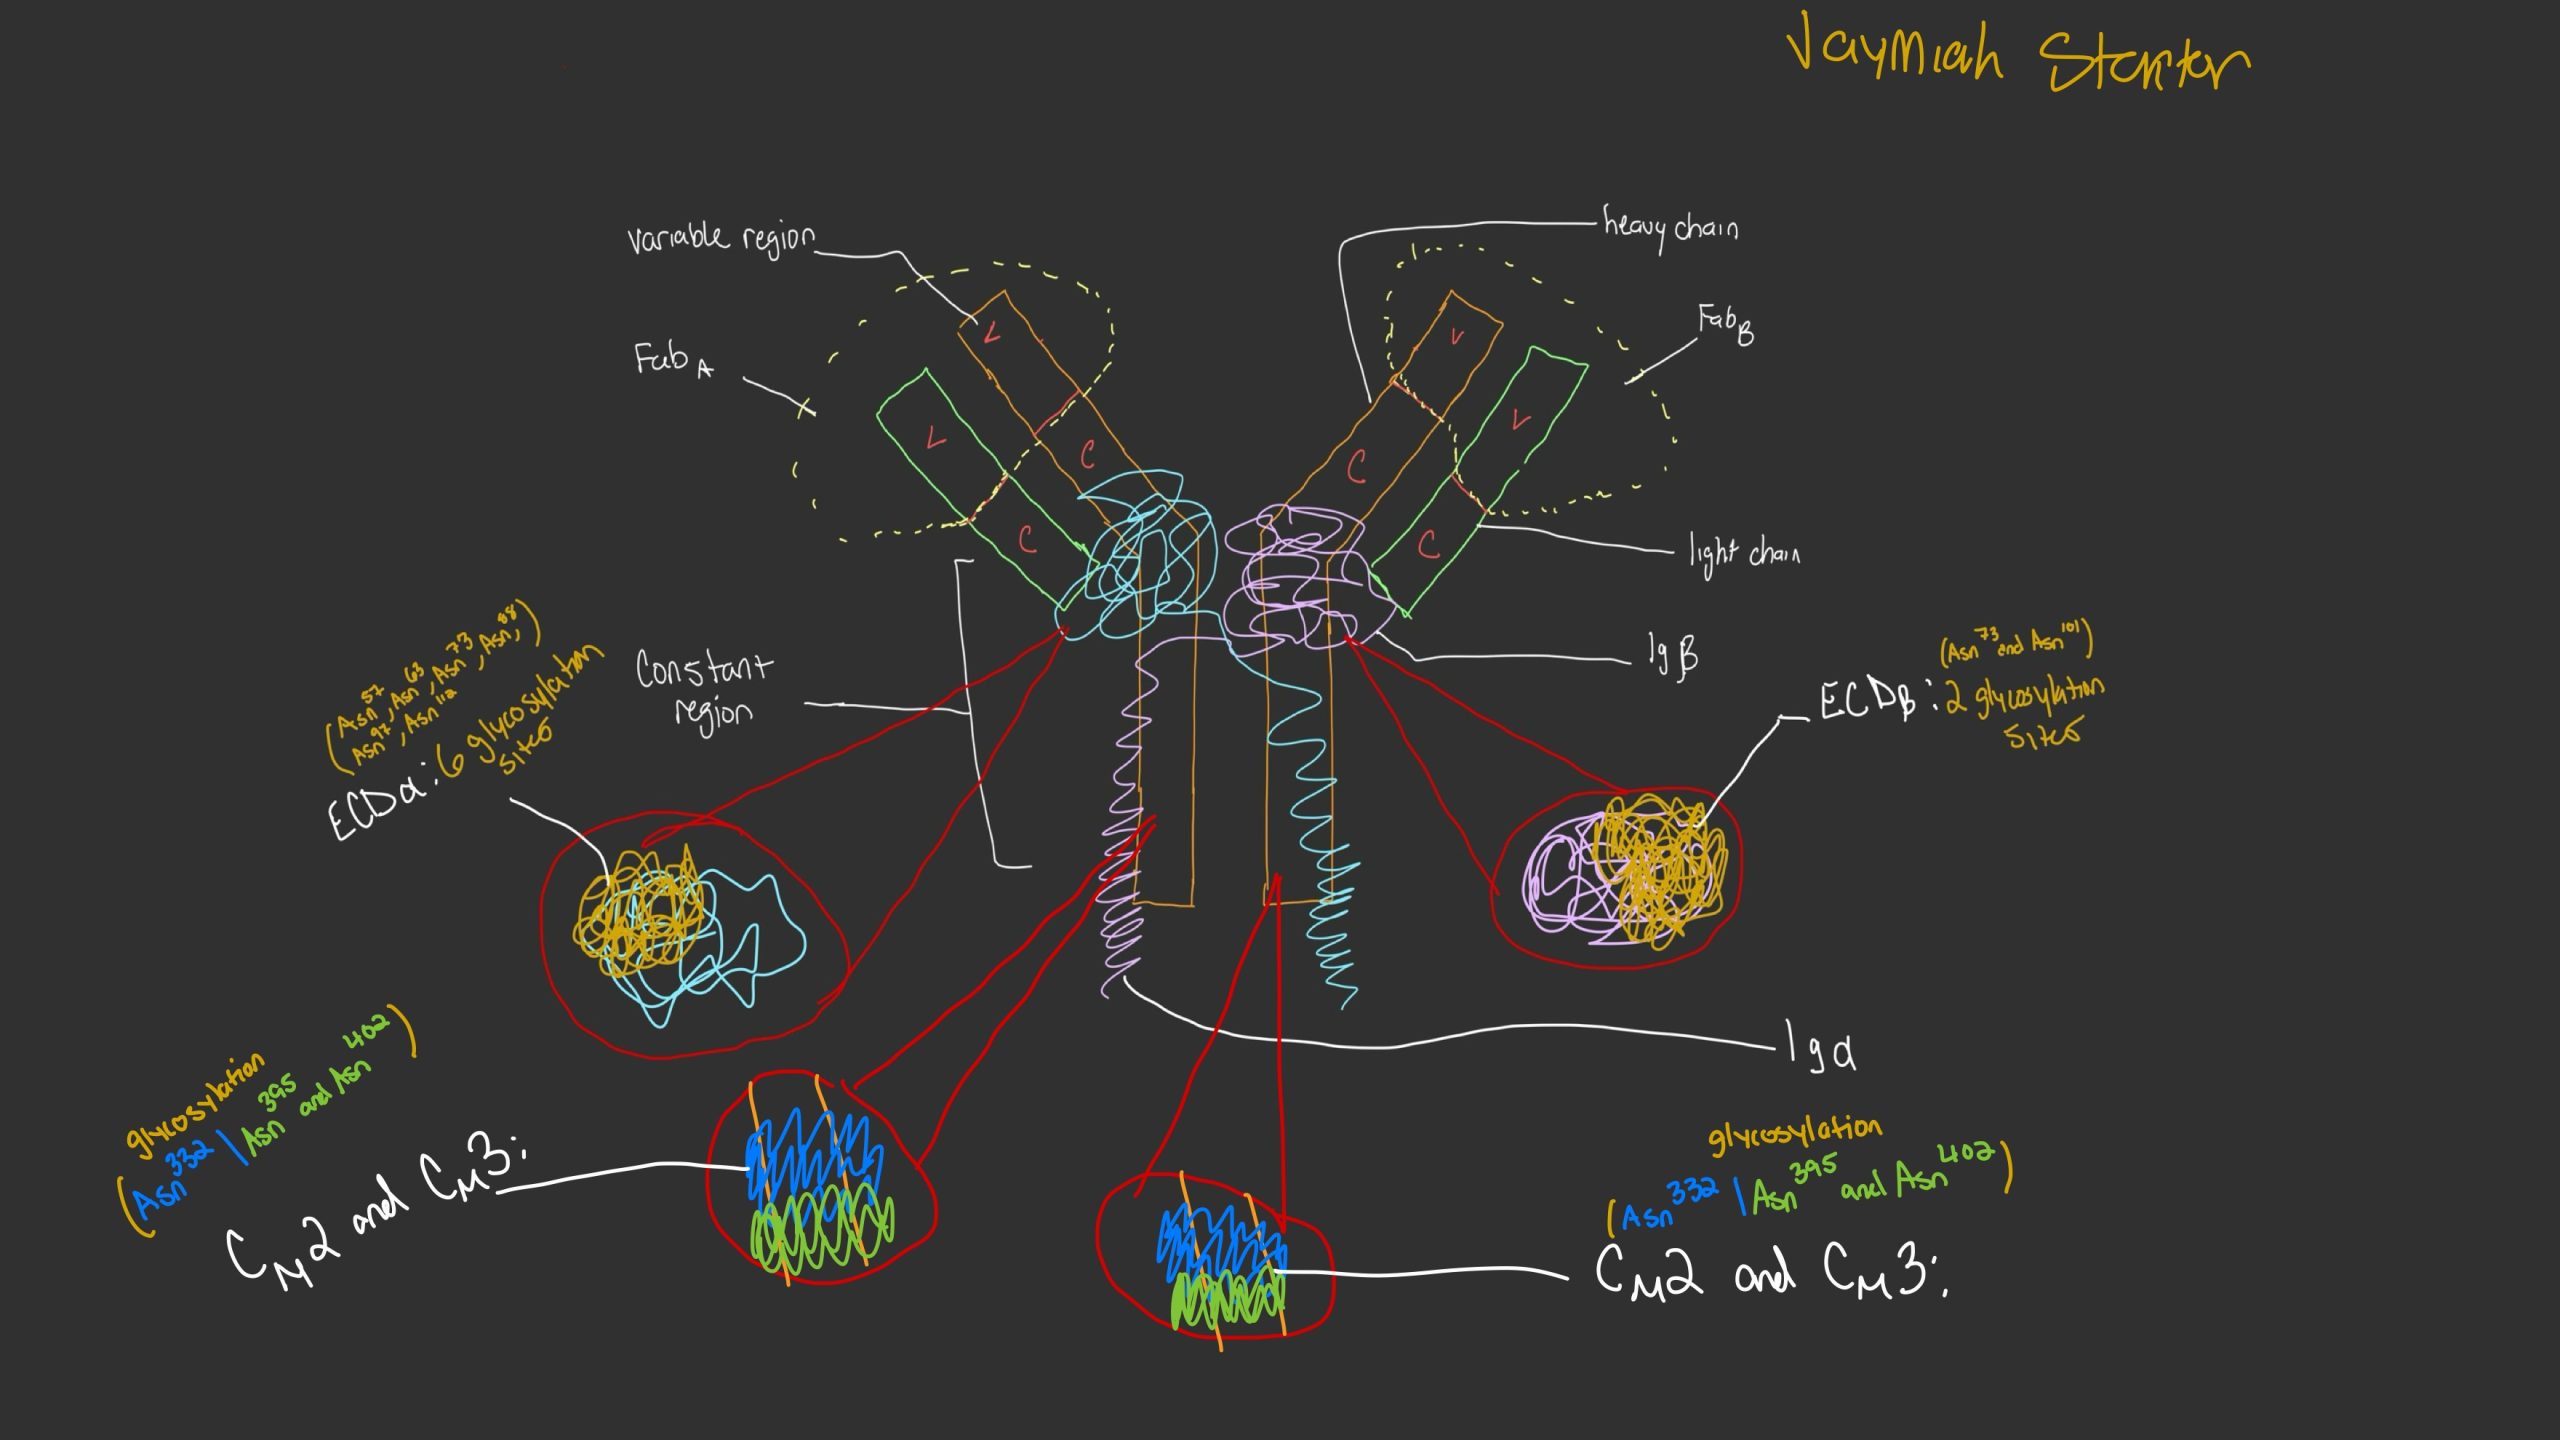 Jaymiah Stanton
variable region
heavy chain
Fab A
Fab B
V
V
V
V
C
C
C
C
light chain
Constant
region
Ig β
(Asn⁵⁷, Asn⁶³, Asn⁷³, Asn⁸⁸,
Asn⁹⁷, Asn¹¹²)
ECDα: 6 glycosylation
sites
(Asn⁷³ and Asn¹⁰¹)
ECDβ: 2 glycosylation
sites
Igα
glycosylation
(Asn³³² | Asn³⁹⁵ and Asn⁴⁰²)
CM2 and CM3:
glycosylation
(Asn³³² | Asn³⁹⁵ and Asn⁴⁰²)
CM2 and CM3: